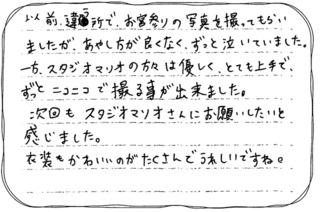 以前、違う所で、お宮参りの写真を撮ってもらい
ましたが、あやし方が良くなく、ずっと泣いていました。
一方、スタジオマリオの方々は優しく、とても上手で、
ずっとニコニコで撮る事が出来ました。
次回もスタジオマリオさんにお願いしたいと
感じました。
衣装もかわいいのがたくさんでうれしいですね。